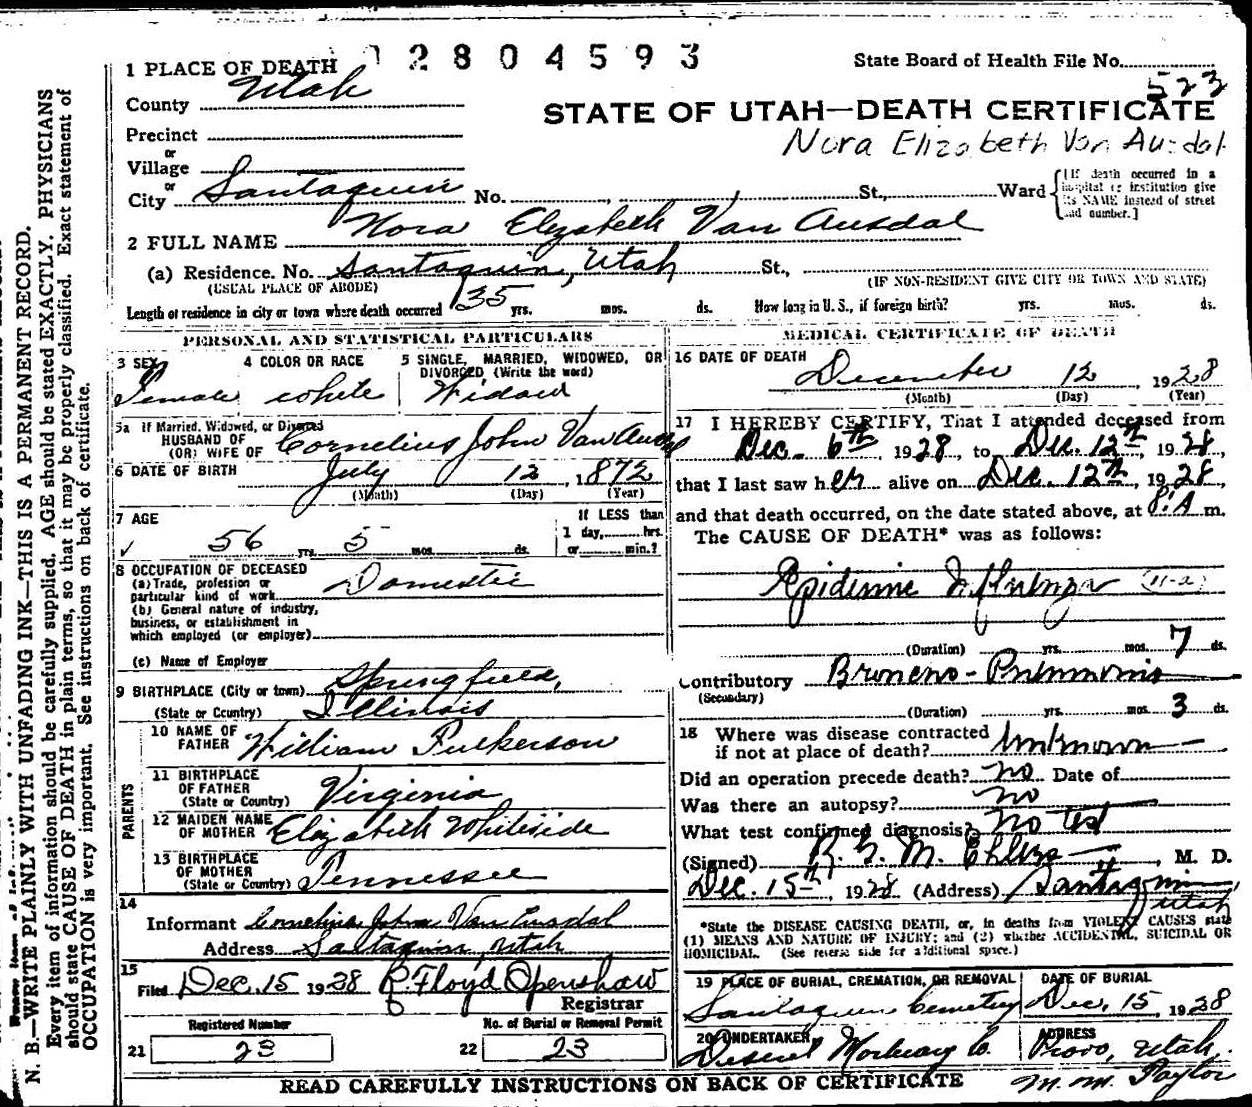 12804593
1 PLACE OF DEATH
State Board of Health File No.
523
County Utah
STATE OF UTAH—DEATH CERTIFICATE
Precinct
Nora Elizabeth Van Ausdal
or
Village
or
City Santaquin No. , St., Ward
[If death occurred in a
hospital or institution give
its NAME instead of street
and number.]
2 FULL NAME Nora Elizabeth Van Ausdal
(a) Residence. No. Santaquin, Utah St.,
(USUAL PLACE OF ABODE)
(IF NON-RESIDENT GIVE CITY OR TOWN AND STATE)
Length of residence in city or town where death occurred 35 yrs. mos. ds. How long in U.S., if foreign birth? yrs. mos. ds.
PERSONAL AND STATISTICAL PARTICULARS
3 SEX
Female
4 COLOR OR RACE
white
5 SINGLE, MARRIED, WIDOWED, OR
DIVORCED (Write the word)
Widow
5a If Married, Widowed, or Divorced
HUSBAND OF
(OR) WIFE OF Cornelius John Van Ausdal
6 DATE OF BIRTH July 12, 1872
(Month) (Day) (Year)
7 AGE
56 yrs. 5 mos. ds.
If LESS than
1 day, hrs.
or min.?
8 OCCUPATION OF DECEASED
(a) Trade, profession or
particular kind of work Domestic
(b) General nature of industry,
business, or establishment in
which employed (or employer)
(c) Name of Employer
9 BIRTHPLACE (City or town) Springfield,
(State or Country) Illinois
PARENTS
10 NAME OF
FATHER William Fulkerson
11 BIRTHPLACE
OF FATHER
(State or Country) Virginia
12 MAIDEN NAME
OF MOTHER Elizabeth Whiteside
13 BIRTHPLACE
OF MOTHER
(State or Country) Tennessee
14
Informant Cornelius John Van Ausdal
Address Santaquin, Utah
15
Filed Dec. 15 1928 R Floyd Openshaw
Registrar
Registered Number
21 23
No. of Burial or Removal Permit
22 23
MEDICAL CERTIFICATE OF DEATH
16 DATE OF DEATH
December 12, 1928
(Month) (Day) (Year)
17 I HEREBY CERTIFY, That I attended deceased from
Dec. 6th 1928, to Dec. 12th, 1928,
that I last saw her alive on Dec. 12th, 1928,
and that death occurred, on the date stated above, at 8:A m.
The CAUSE OF DEATH* was as follows:
Epidemic Influenza (11-a)
(Duration) yrs. mos. 7 ds.
Contributory Broncho-Pneumonia
(Secondary)
(Duration) yrs. mos. 3 ds.
18 Where was disease contracted
if not at place of death? Unknown
Did an operation precede death? no Date of
Was there an autopsy? no
What test confirmed diagnosis? no test
(Signed) , M. D.
Dec. 15th, 1928 (Address) Santaquin
Utah
*State the DISEASE CAUSING DEATH, or, in deaths from VIOLENT CAUSES state
(1) MEANS AND NATURE OF INJURY; and (2) whether ACCIDENTAL, SUICIDAL OR
HOMICIDAL. (See reverse side for additional space.)
19 PLACE OF BURIAL, CREMATION, OR REMOVAL
Santaquin Cemetery
DATE OF BURIAL
Dec. 15, 1928
20 UNDERTAKER
Deseret Mortuary Co.
ADDRESS
Provo, Utah.
M. M. Taylor
READ CAREFULLY INSTRUCTIONS ON BACK OF CERTIFICATE
N. B.—WRITE PLAINLY WITH UNFADING INK—THIS IS A PERMANENT RECORD.
Every item of information should be carefully supplied. AGE should be stated EXACTLY. PHYSICIANS
should state CAUSE OF DEATH in plain terms, so that it may be properly classified. Exact statement of
OCCUPATION is very important. See instructions on back of certificate.